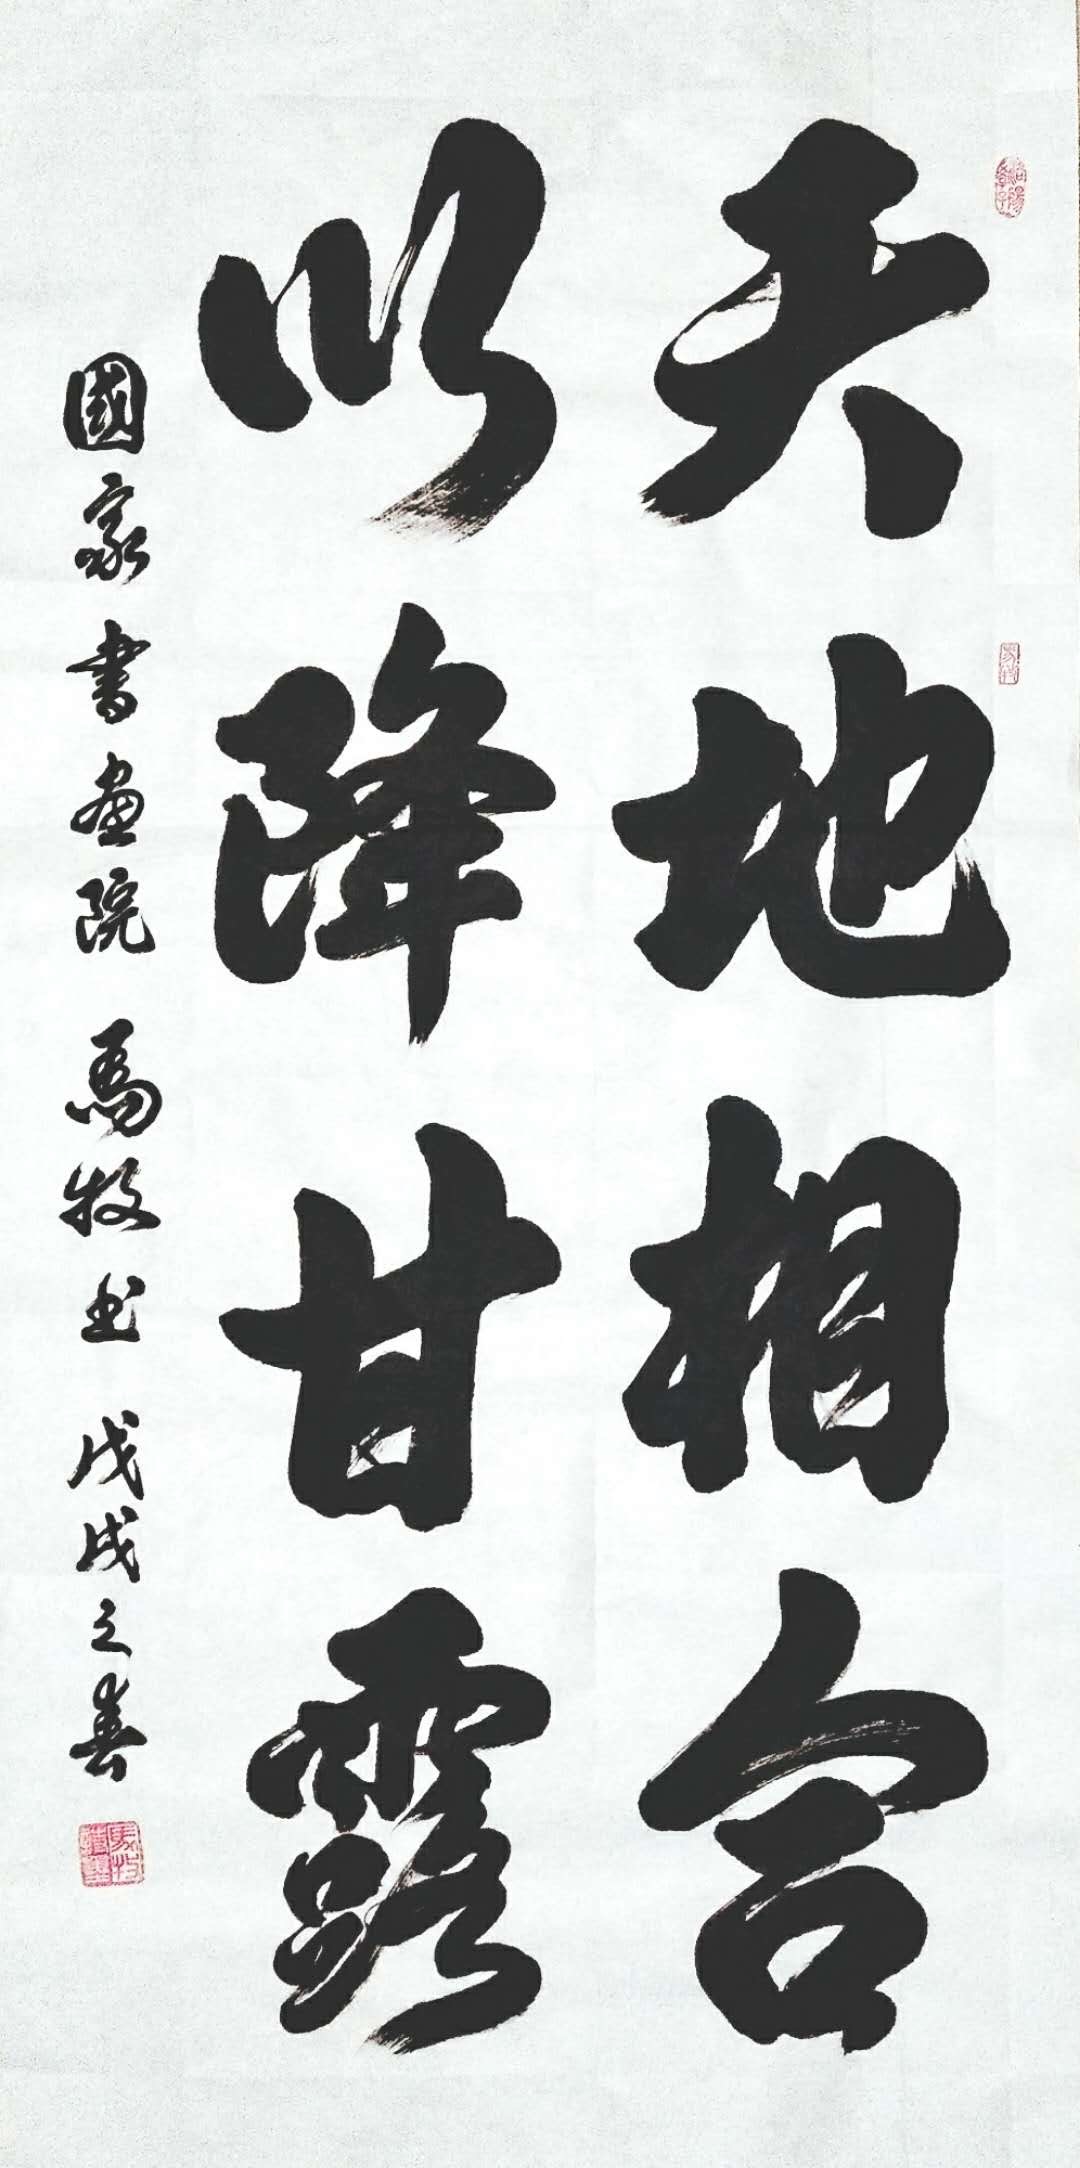 天地相合
以降甘露
國家書畫院 馬牧书 戊戌之春